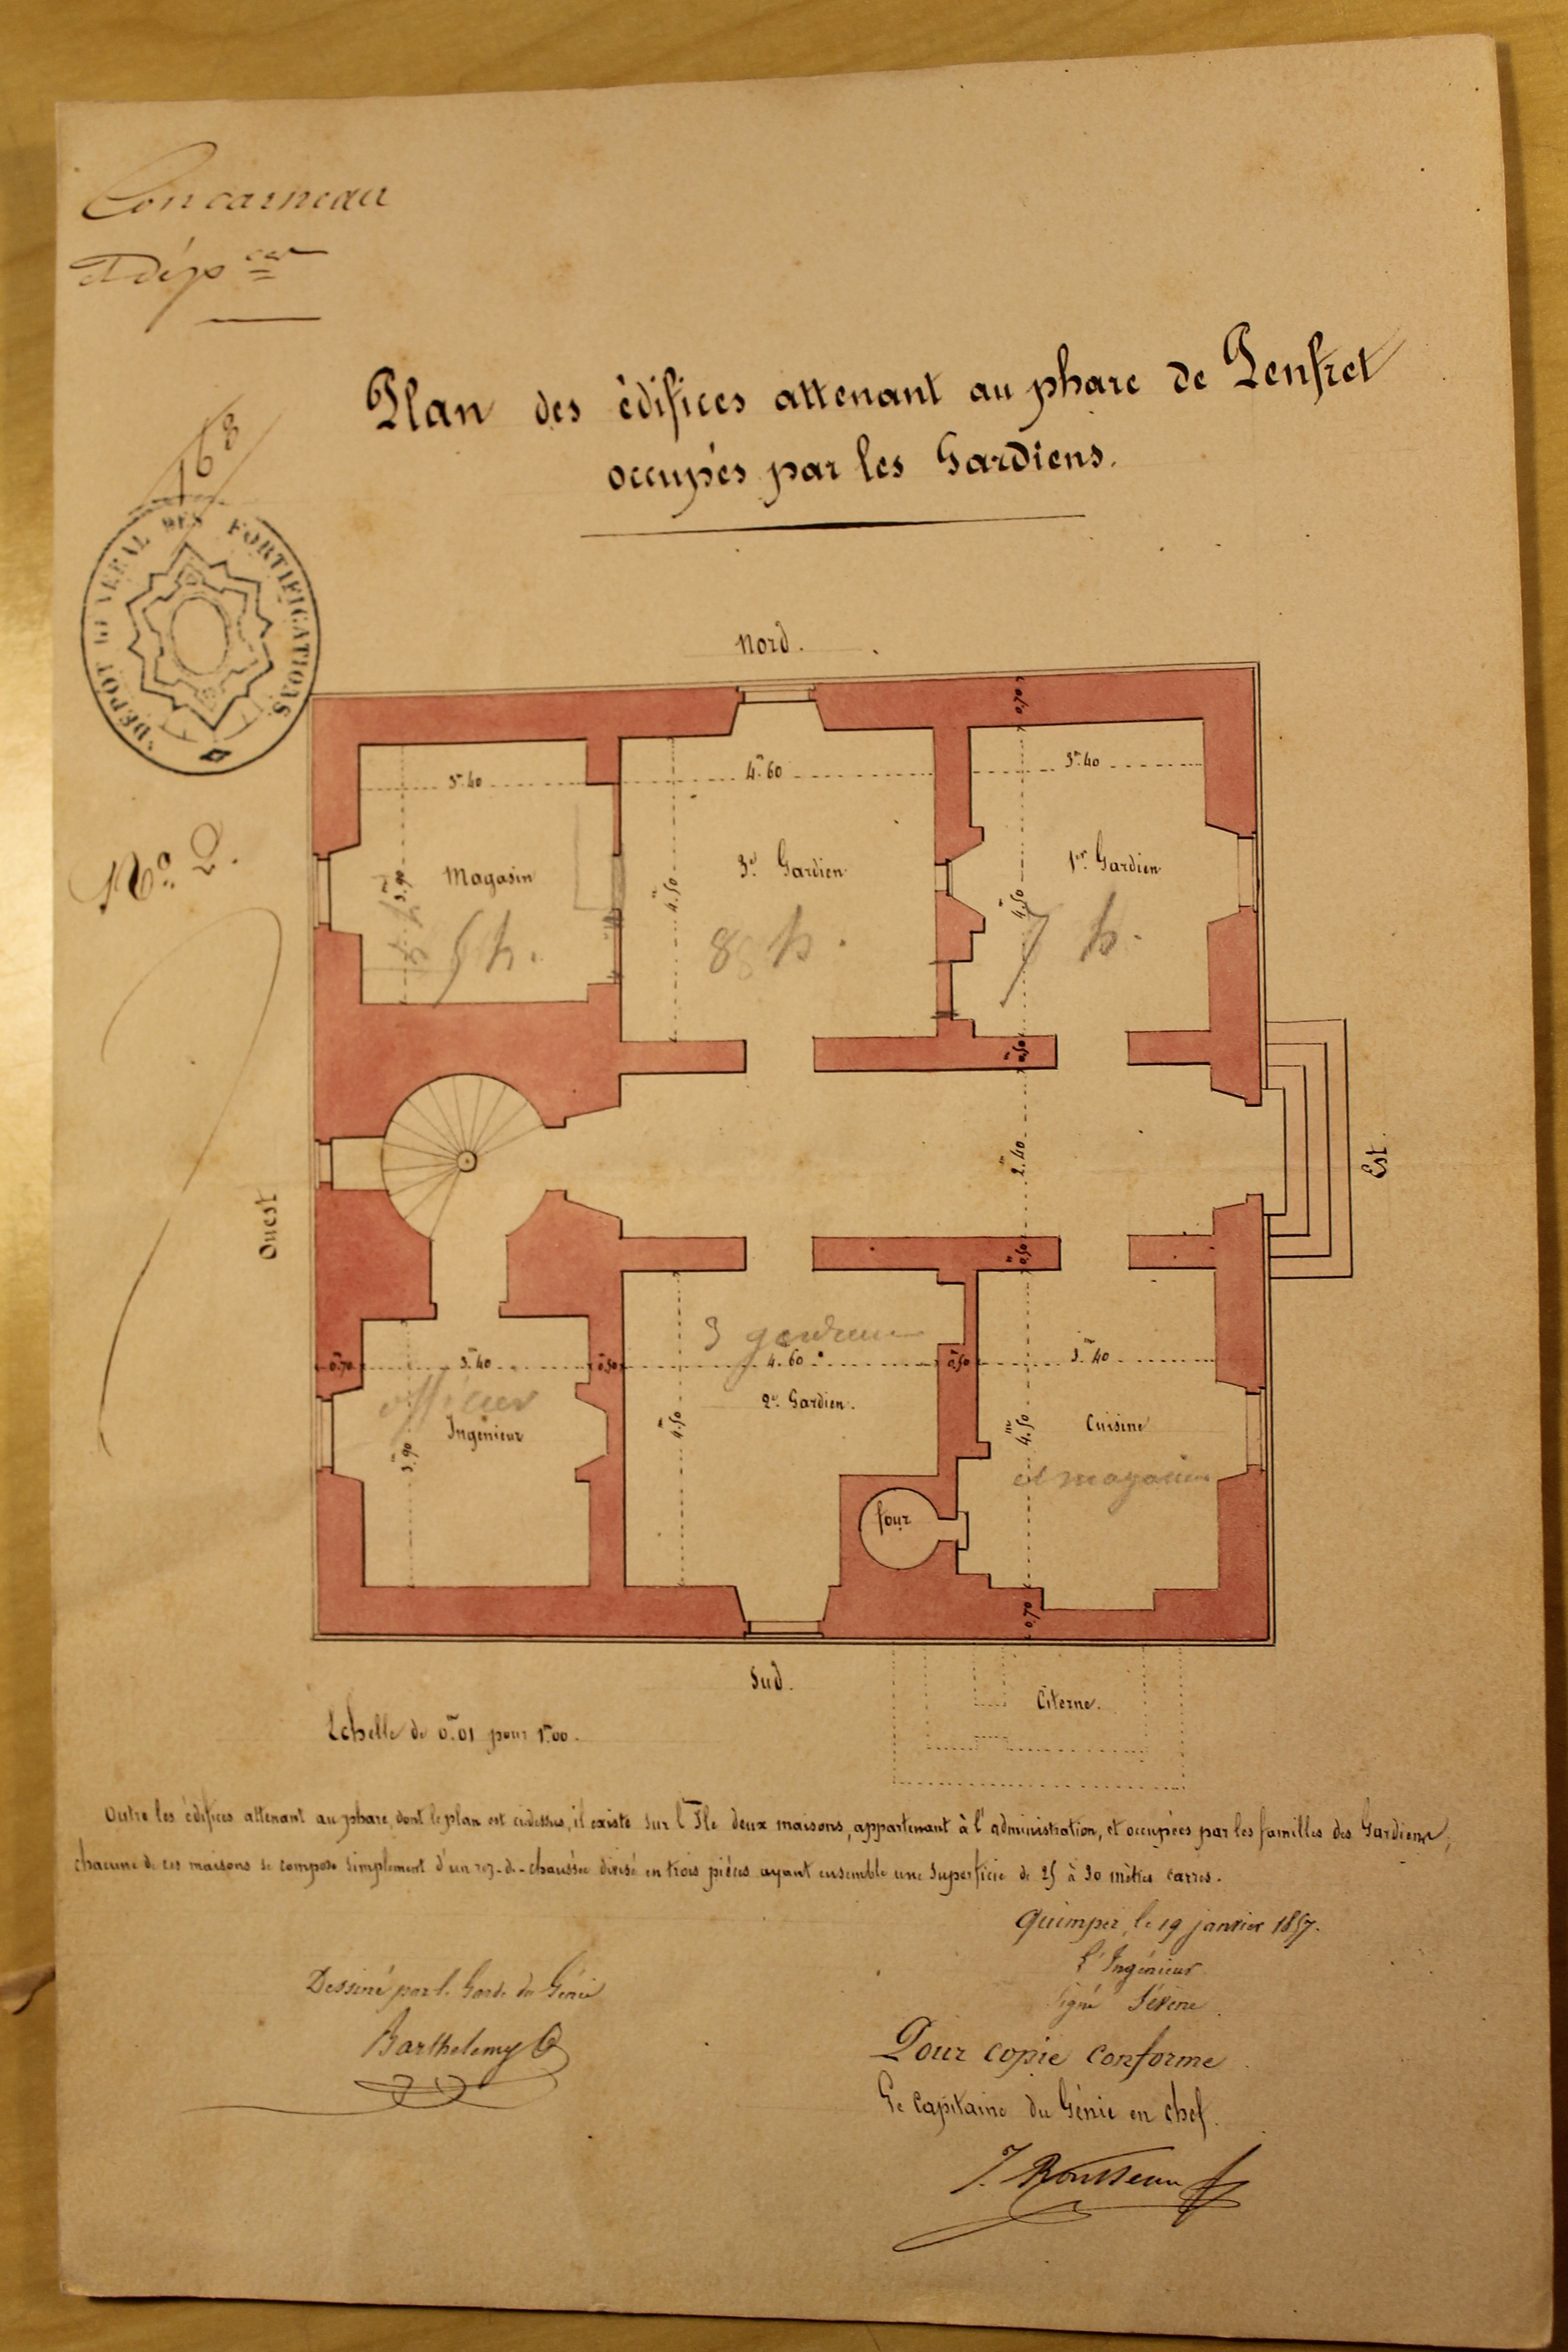 Concarneau
et dép ces
168
DÉPÔT GÉNÉRAL DES FORTIFICATIONS
Plan des édifices attenant au phare de Penfret
occupés par les Gardiens.
No. 2.
Nord.
0,70
3m.40
4m.60
3m.40
Magasin
3d Gardien
1er Gardien
3m.90
4m.50
4m.50
5 h.
8 h.
7 h.
0m.50
2m.40
Ouest
Est.
0m.50
3 gardiens
0m.70
3m.40
0m.50
4.60
0m.50
3m.40
officier
2d Gardien.
Ingénieur
Cuisine
3m.90
4m.50
4m.50
et magasin
four
0,70
Sud.
Citerne.
Echelle de 0m.01 pour 1m.00.
Outre les édifices attenant au phare, dont le plan est cidessus, il existe sur l'Ile deux maisons, appartenant à l'administration, et occupées par les familles des Gardiens;
chacune de ces maisons se compose simplement d'un rez-de-chaussée divisé en trois pièces ayant ensemble une superficie de 25 à 30 mètres carrés.
Quimper, le 19 janvier 1857.
L'Ingénieur
Signé
Dessiné par le Garde du Génie
Barthelemy
Pour copie conforme
Le Capitaine du Génie en chef.
J. Rousseau